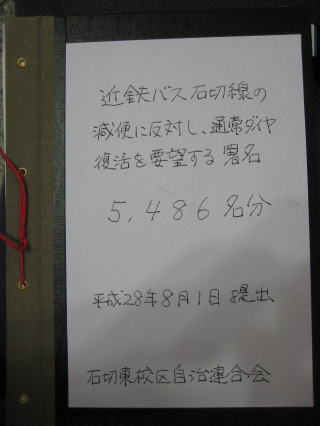 近鉄バス石切線の
減便に反対し、通常ダイヤ
復活を要望する署名
5,486名分
平成28年8月1日提出
石切東校区自治連合会